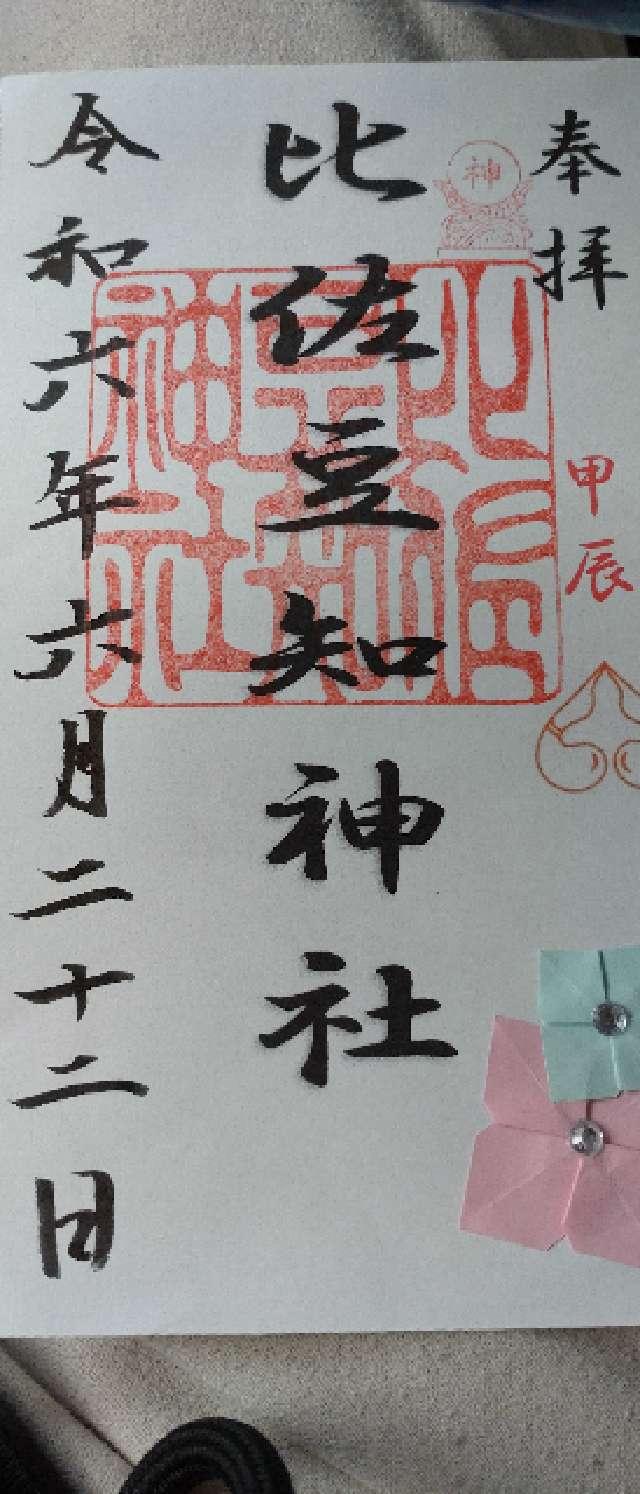 奉拝
甲辰
神
比佐豆知神社
令和六年六月二十二日